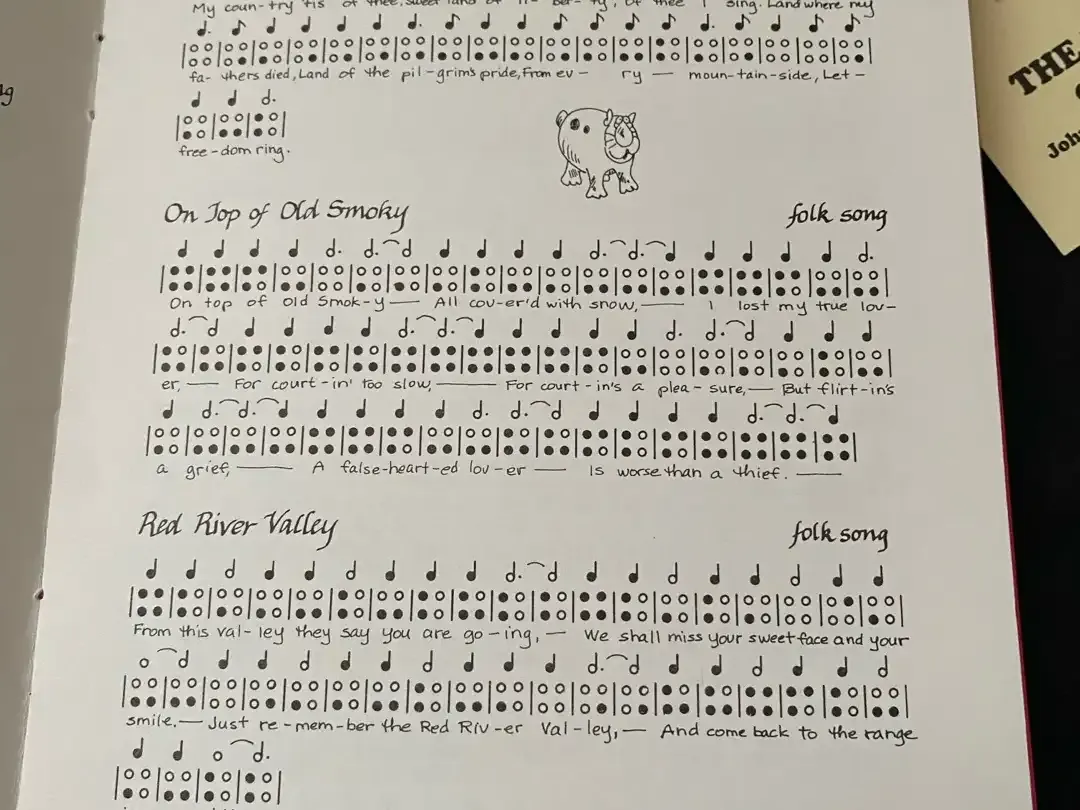 My coun-try tis of thee, sweet land of li- ber- ty, Of thee I sing. Land where my
fa- thers died, Land of the pil-grim's pride, From ev- ry — moun-tain-side, Let-
free-dom ring.
On Top of Old Smoky folk song
On top of Old Smok-y — All cov-er'd with snow, — I lost my true lov-
er, — For court-in' too slow, — For court-in's a plea-sure, — But flirt-in's
a grief, — A false-heart-ed lov-er — Is worse than a thief. —
Red River Valley folk song
From this val-ley they say you are go-ing, — We shall miss your sweet face and your
smile. — Just re-mem-ber the Red Riv-er Val-ley, — And come back to the range
THE
John